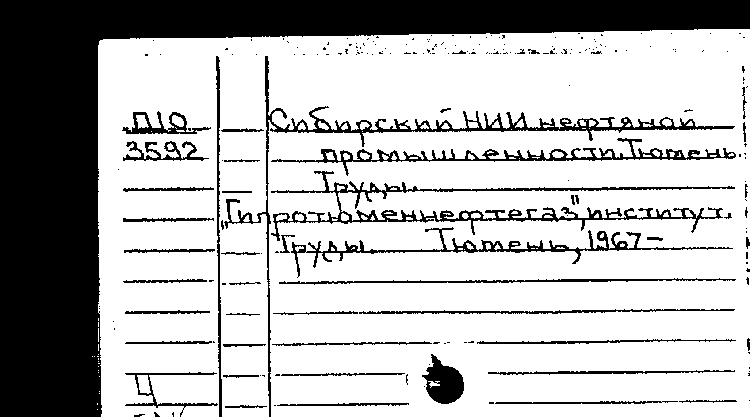 П10 Сибирский НИИ нефтяной
3592 промышленности. Тюмень.
Труды.
„Гипротюменнефтегаз", институт.
Труды. Тюмень, 1967–
Ч